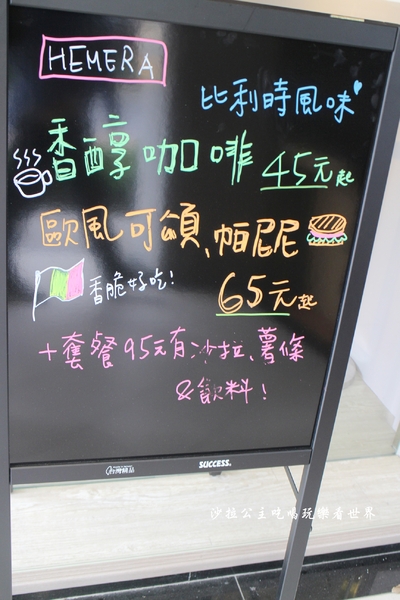 HEMERA
比利時風味
香醇咖啡 45元起
歐風可頌、帕尼尼
香脆好吃!
65元起
+套餐95元有沙拉、薯條
&飲料!
台灣精品
SUCCESS®
沙拉公主吃喝玩樂看世界